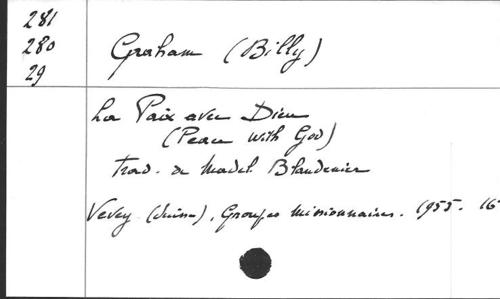 281
280
29
Graham (Billy)
La Paix avec Dieu
(Peace with God)
Trad. de Madel. Blandenier
Vevey (Suisse), Groupes missionnaires. 1955. 16